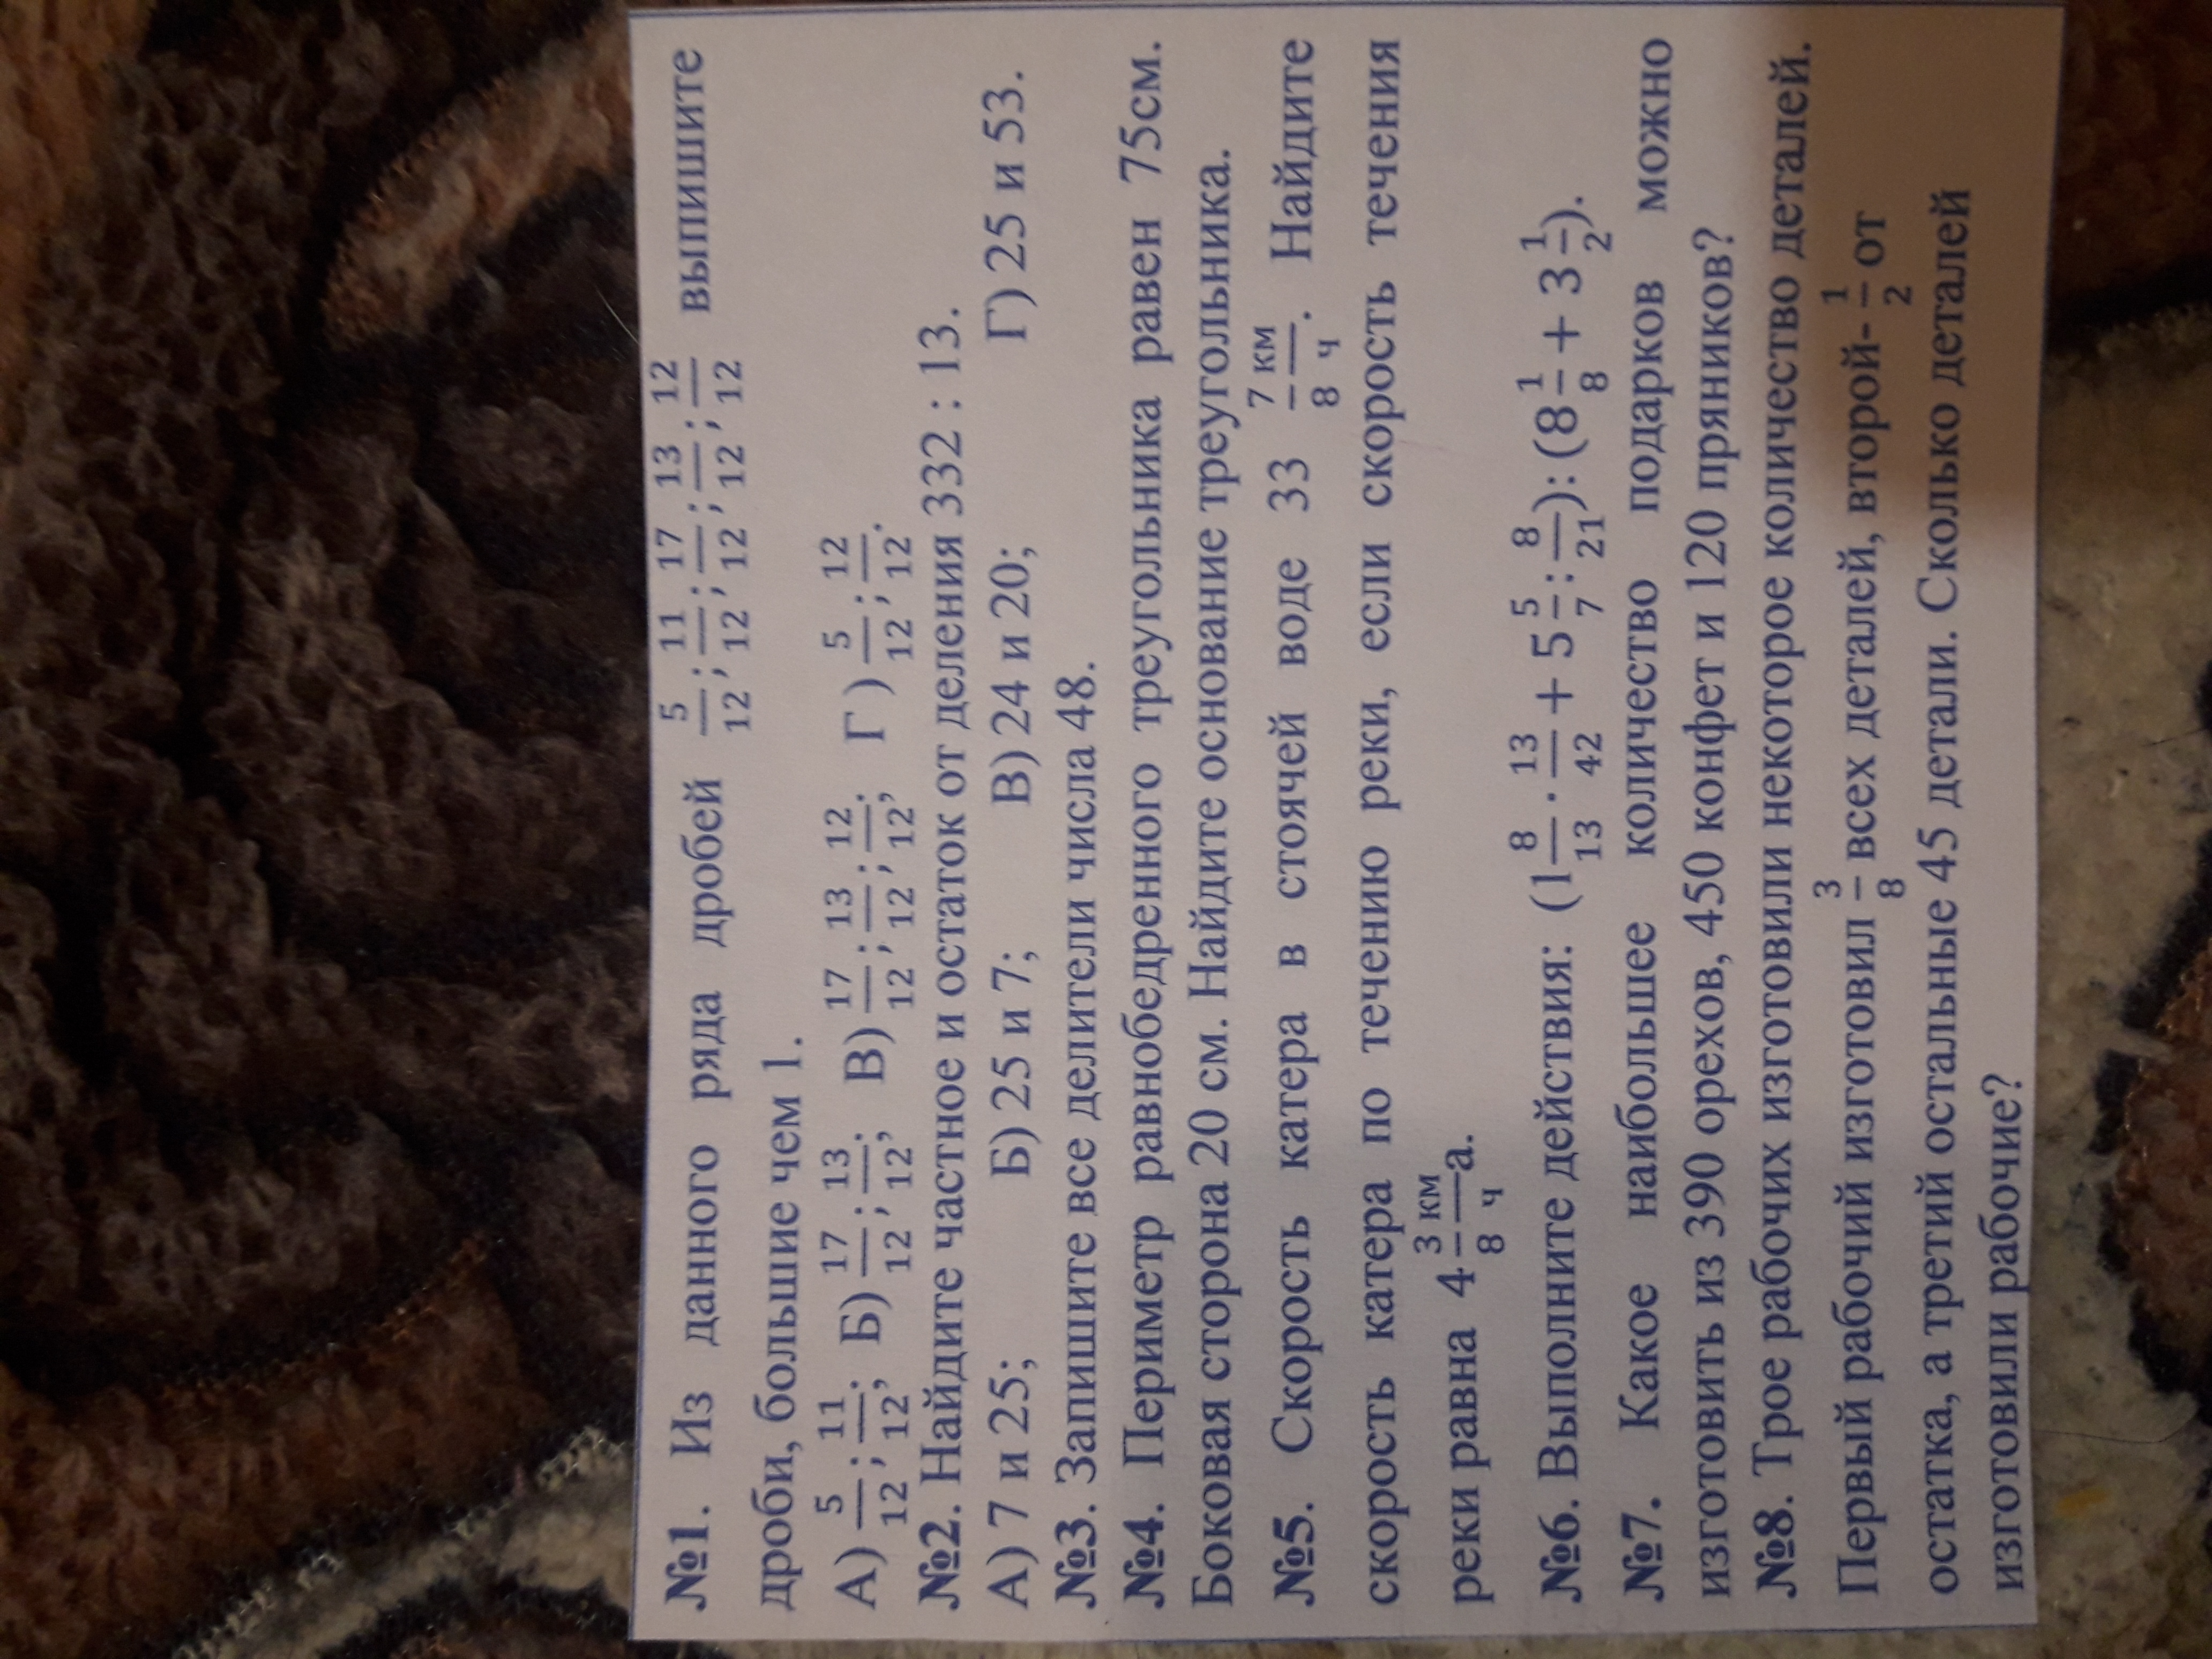 №1. Из данного ряда дробей 5/12; 11/12; 17/12; 13/12; 12/12 выпишите
дроби, большие чем 1.
А) 5/12; 11/12; Б) 17/12; 13/12; В) 17/12; 13/12; 12/12; Г ) 5/12; 12/12.
№2. Найдите частное и остаток от деления 332 : 13.
А) 7 и 25; Б) 25 и 7; В) 24 и 20; Г) 25 и 53.
№3. Запишите все делители числа 48.
№4. Периметр равнобедренного треугольника равен 75см.
Боковая сторона 20 см. Найдите основание треугольника.
№5. Скорость катера в стоячей воде 33 7/8 км/ч. Найдите
скорость катера по течению реки, если скорость течения
реки равна 4 3/8 км/ч а.
№6. Выполните действия: (1 8/13 · 13/42 + 5 5/7 : 8/21) : (8 1/8 + 3 1/2).
№7. Какое наибольшее количество подарков можно
изготовить из 390 орехов, 450 конфет и 120 пряников?
№8. Трое рабочих изготовили некоторое количество деталей.
Первый рабочий изготовил 3/8 всех деталей, второй- 1/2 от
остатка, а третий остальные 45 детали. Сколько деталей
изготовили рабочие?